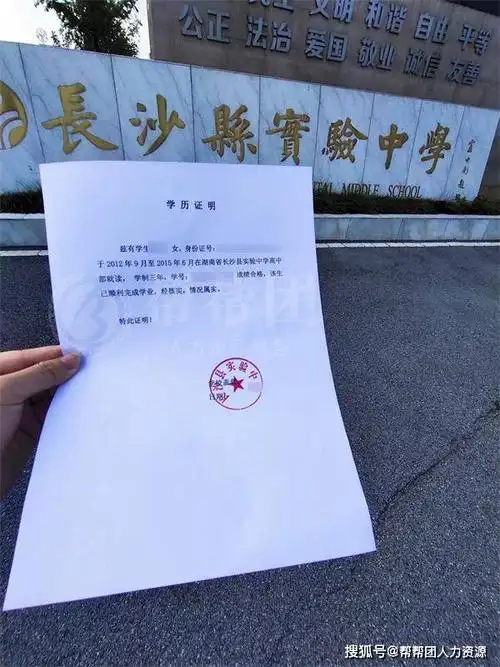 文明 和谐 自由 平等
公正 法治 爱国 敬业 诚信 友善
長沙縣實驗中學
MIDDLE SCHOOL
学历证明
兹有学生 女，身份证号：
于 2012 年 9 月至 2015 年 6 月在湖南省长沙县实验中学高中
部就读， 学制三年，学号： 成绩合格，该生
已顺利完成学业，经核实，情况属实。
特此证明！
帮帮团
沙县实验中
日期
搜狐号@帮帮团人力资源